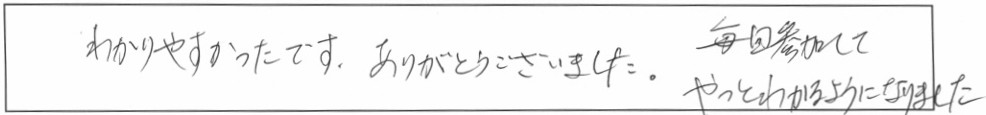 わかりやすかったです、ありがとうございました。
毎回参加して
やっとわかるようになりました